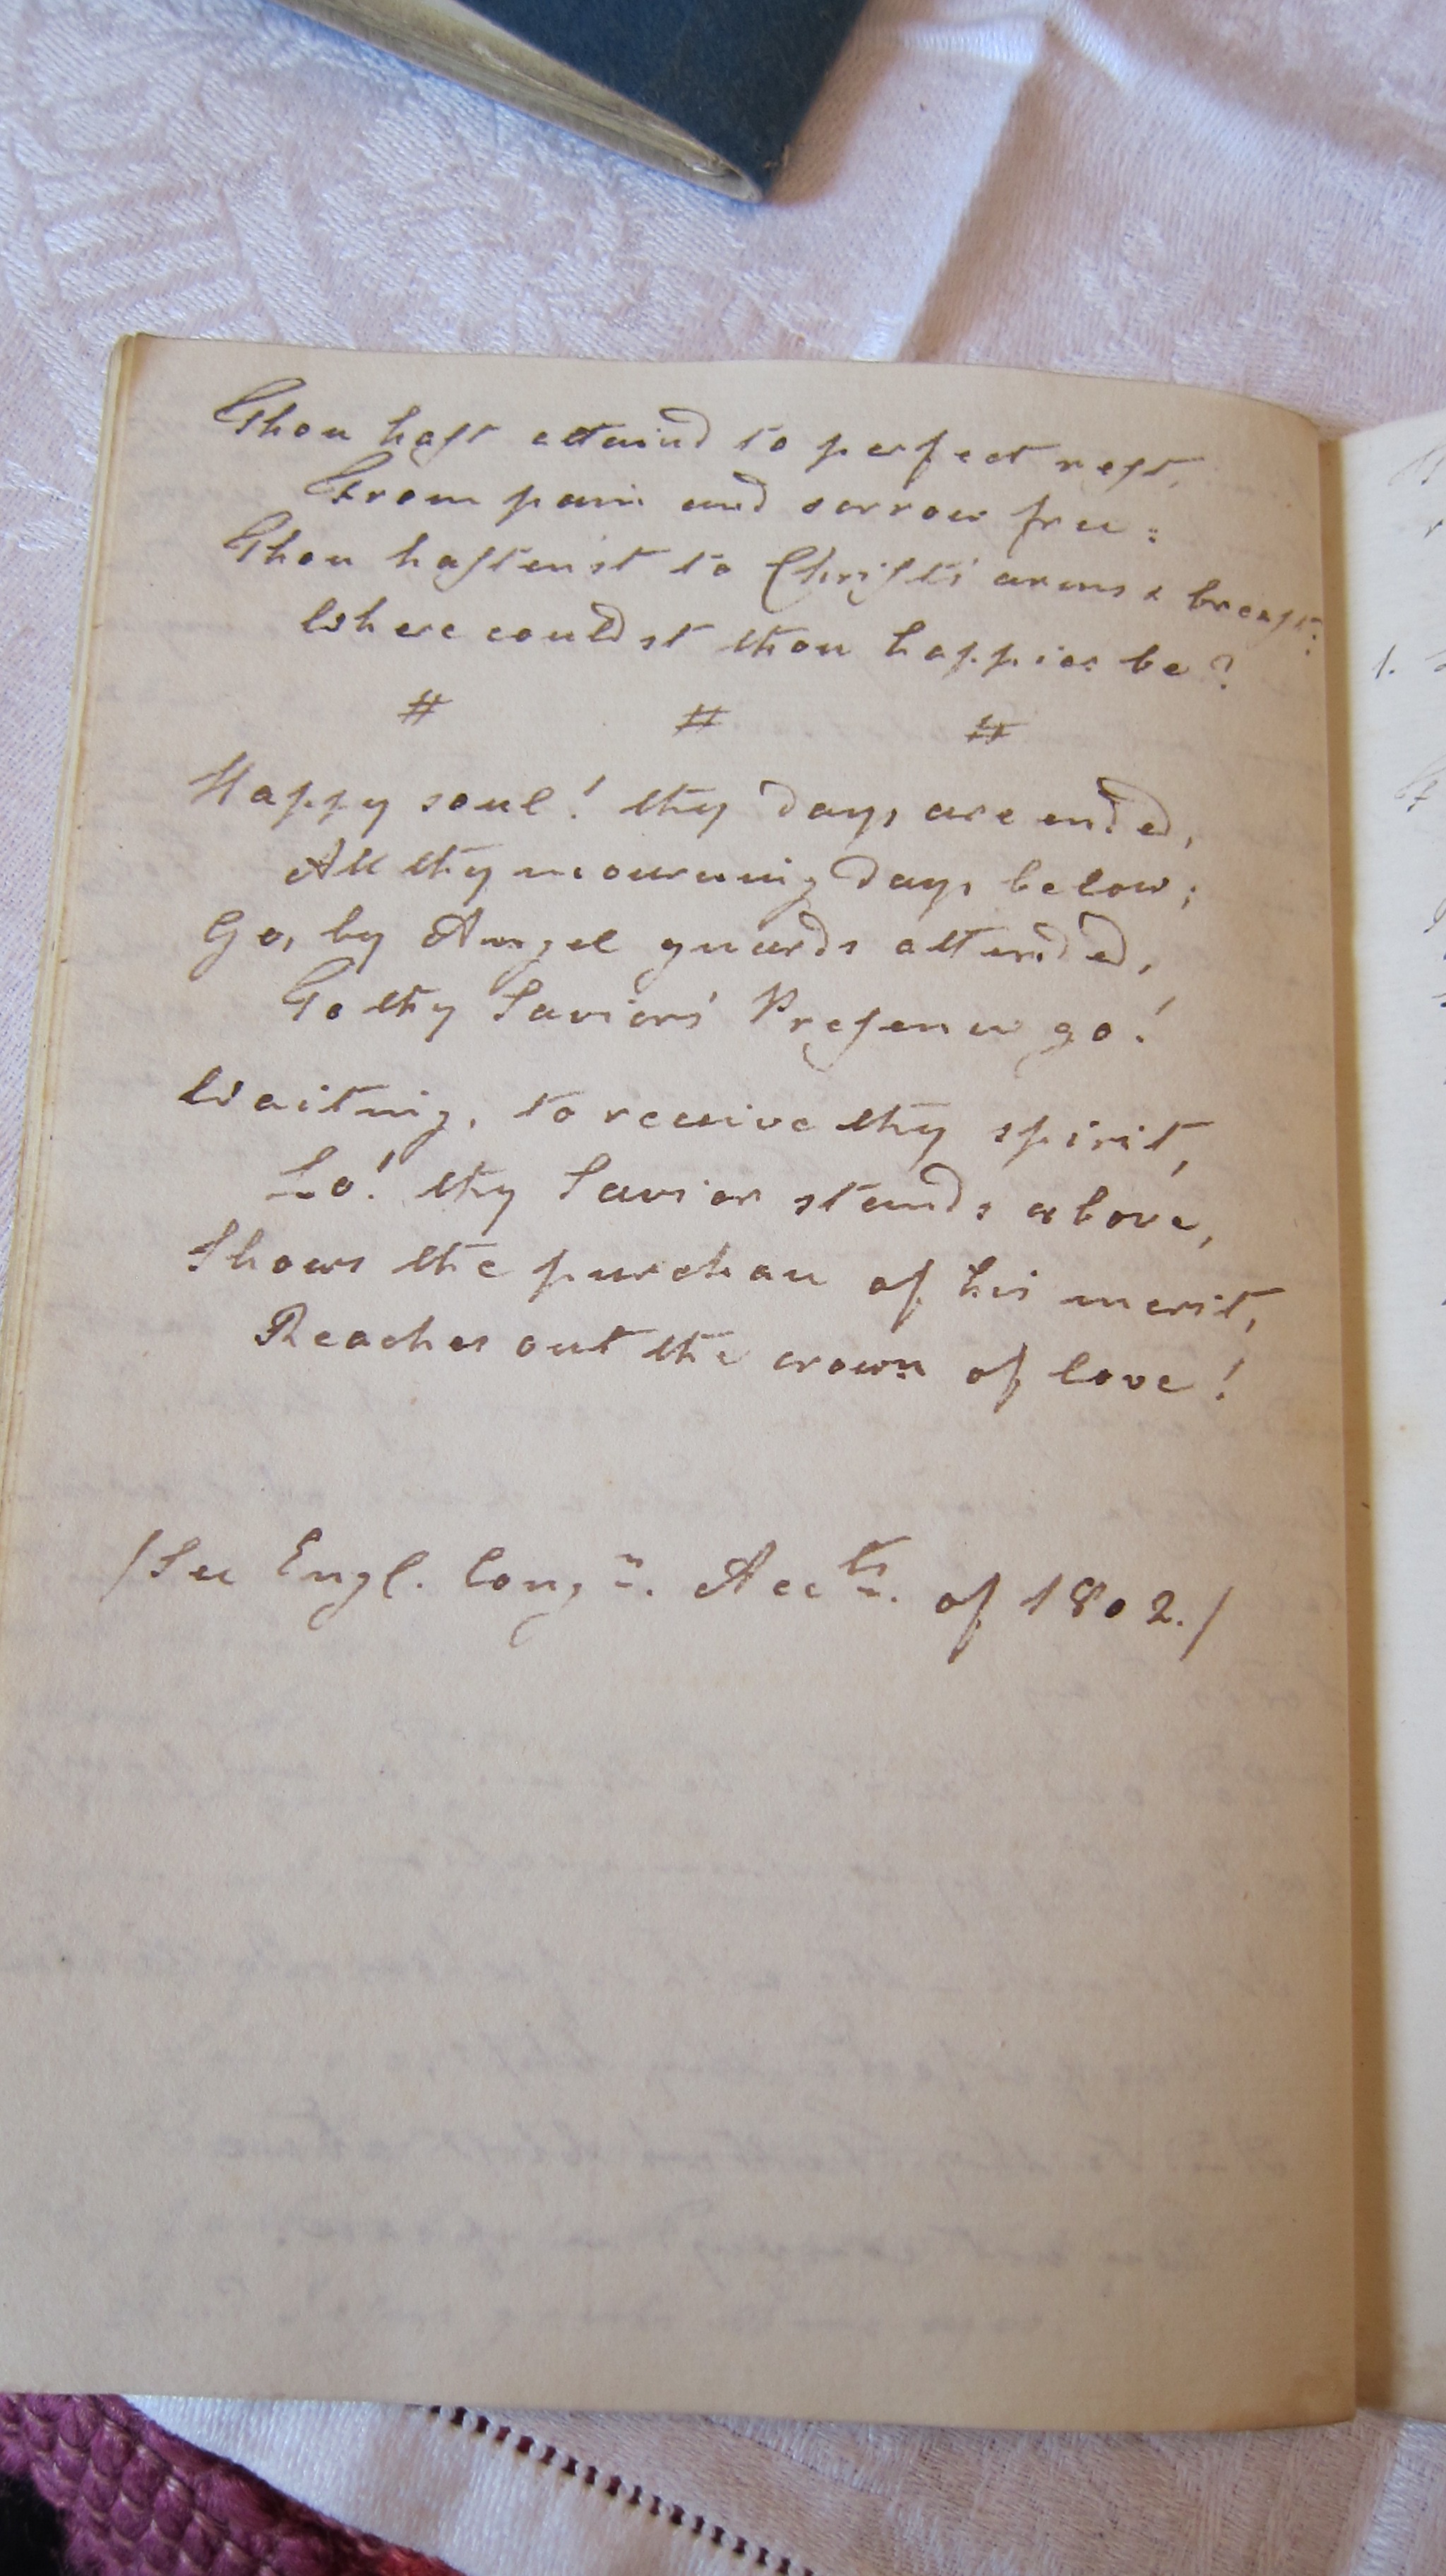 Thou hast attaind to perfect rest,
From pain and sorrow free:
Thou hasten'st to Christs' arms & breast:
Where couldst thou happier be?
# # #
Happy soul! thy days are ended,
All thy mourning days below;
Go, by Angel guards attended,
To thy Saviors' Presence go!
Waiting, to receive thy spirit,
Lo! thy Savior stands above,
Shows the purchase of his merit,
Reaches out the crown of love!
/See Engl. Congn. Accts. of 1802./
1.